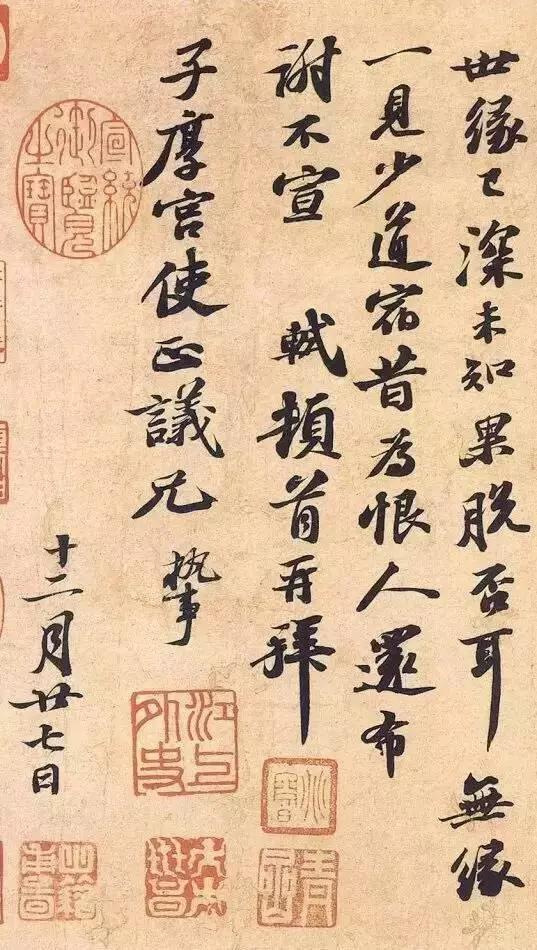 世緣已深未知果脫否耳無緣
一見少道宿昔為恨人還布
謝不宣 軾頓首再拜
子厚宮使正議兄 執事
十二月廿七日
宣統御覽之寶
江上外史